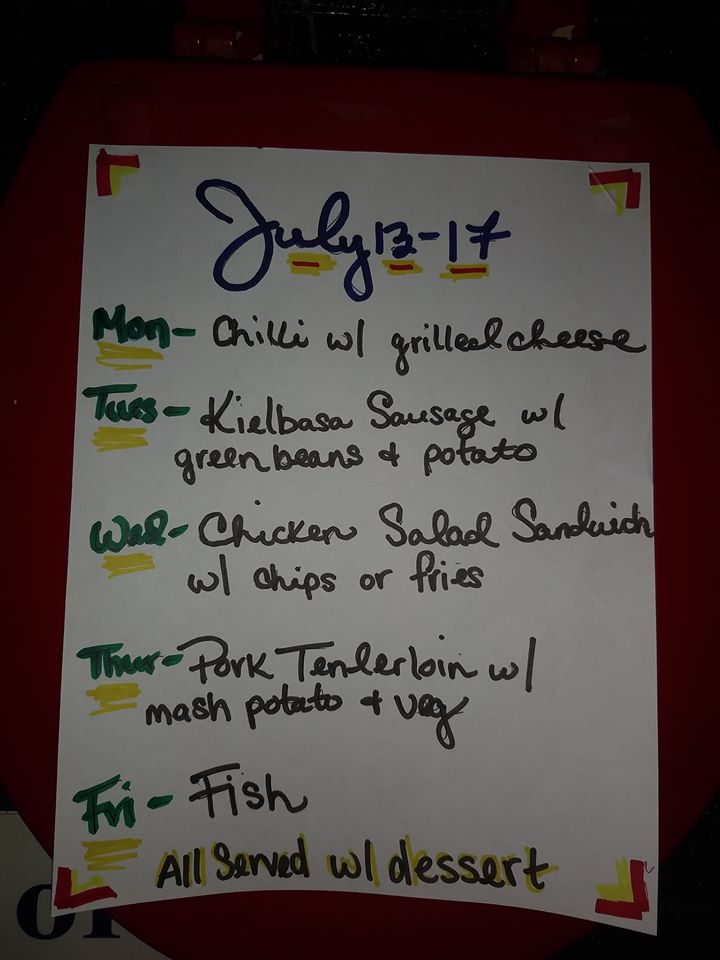 July 13-17
Mon- Chilli w/ grilled cheese
Tues- Kielbasa Sausage w/
green beans & potato
Wed- Chicken Salad Sandwich
w/ chips or fries
Thur- Pork Tenderloin w/
mash potato & veg
Fri- Fish
All Served w/ dessert